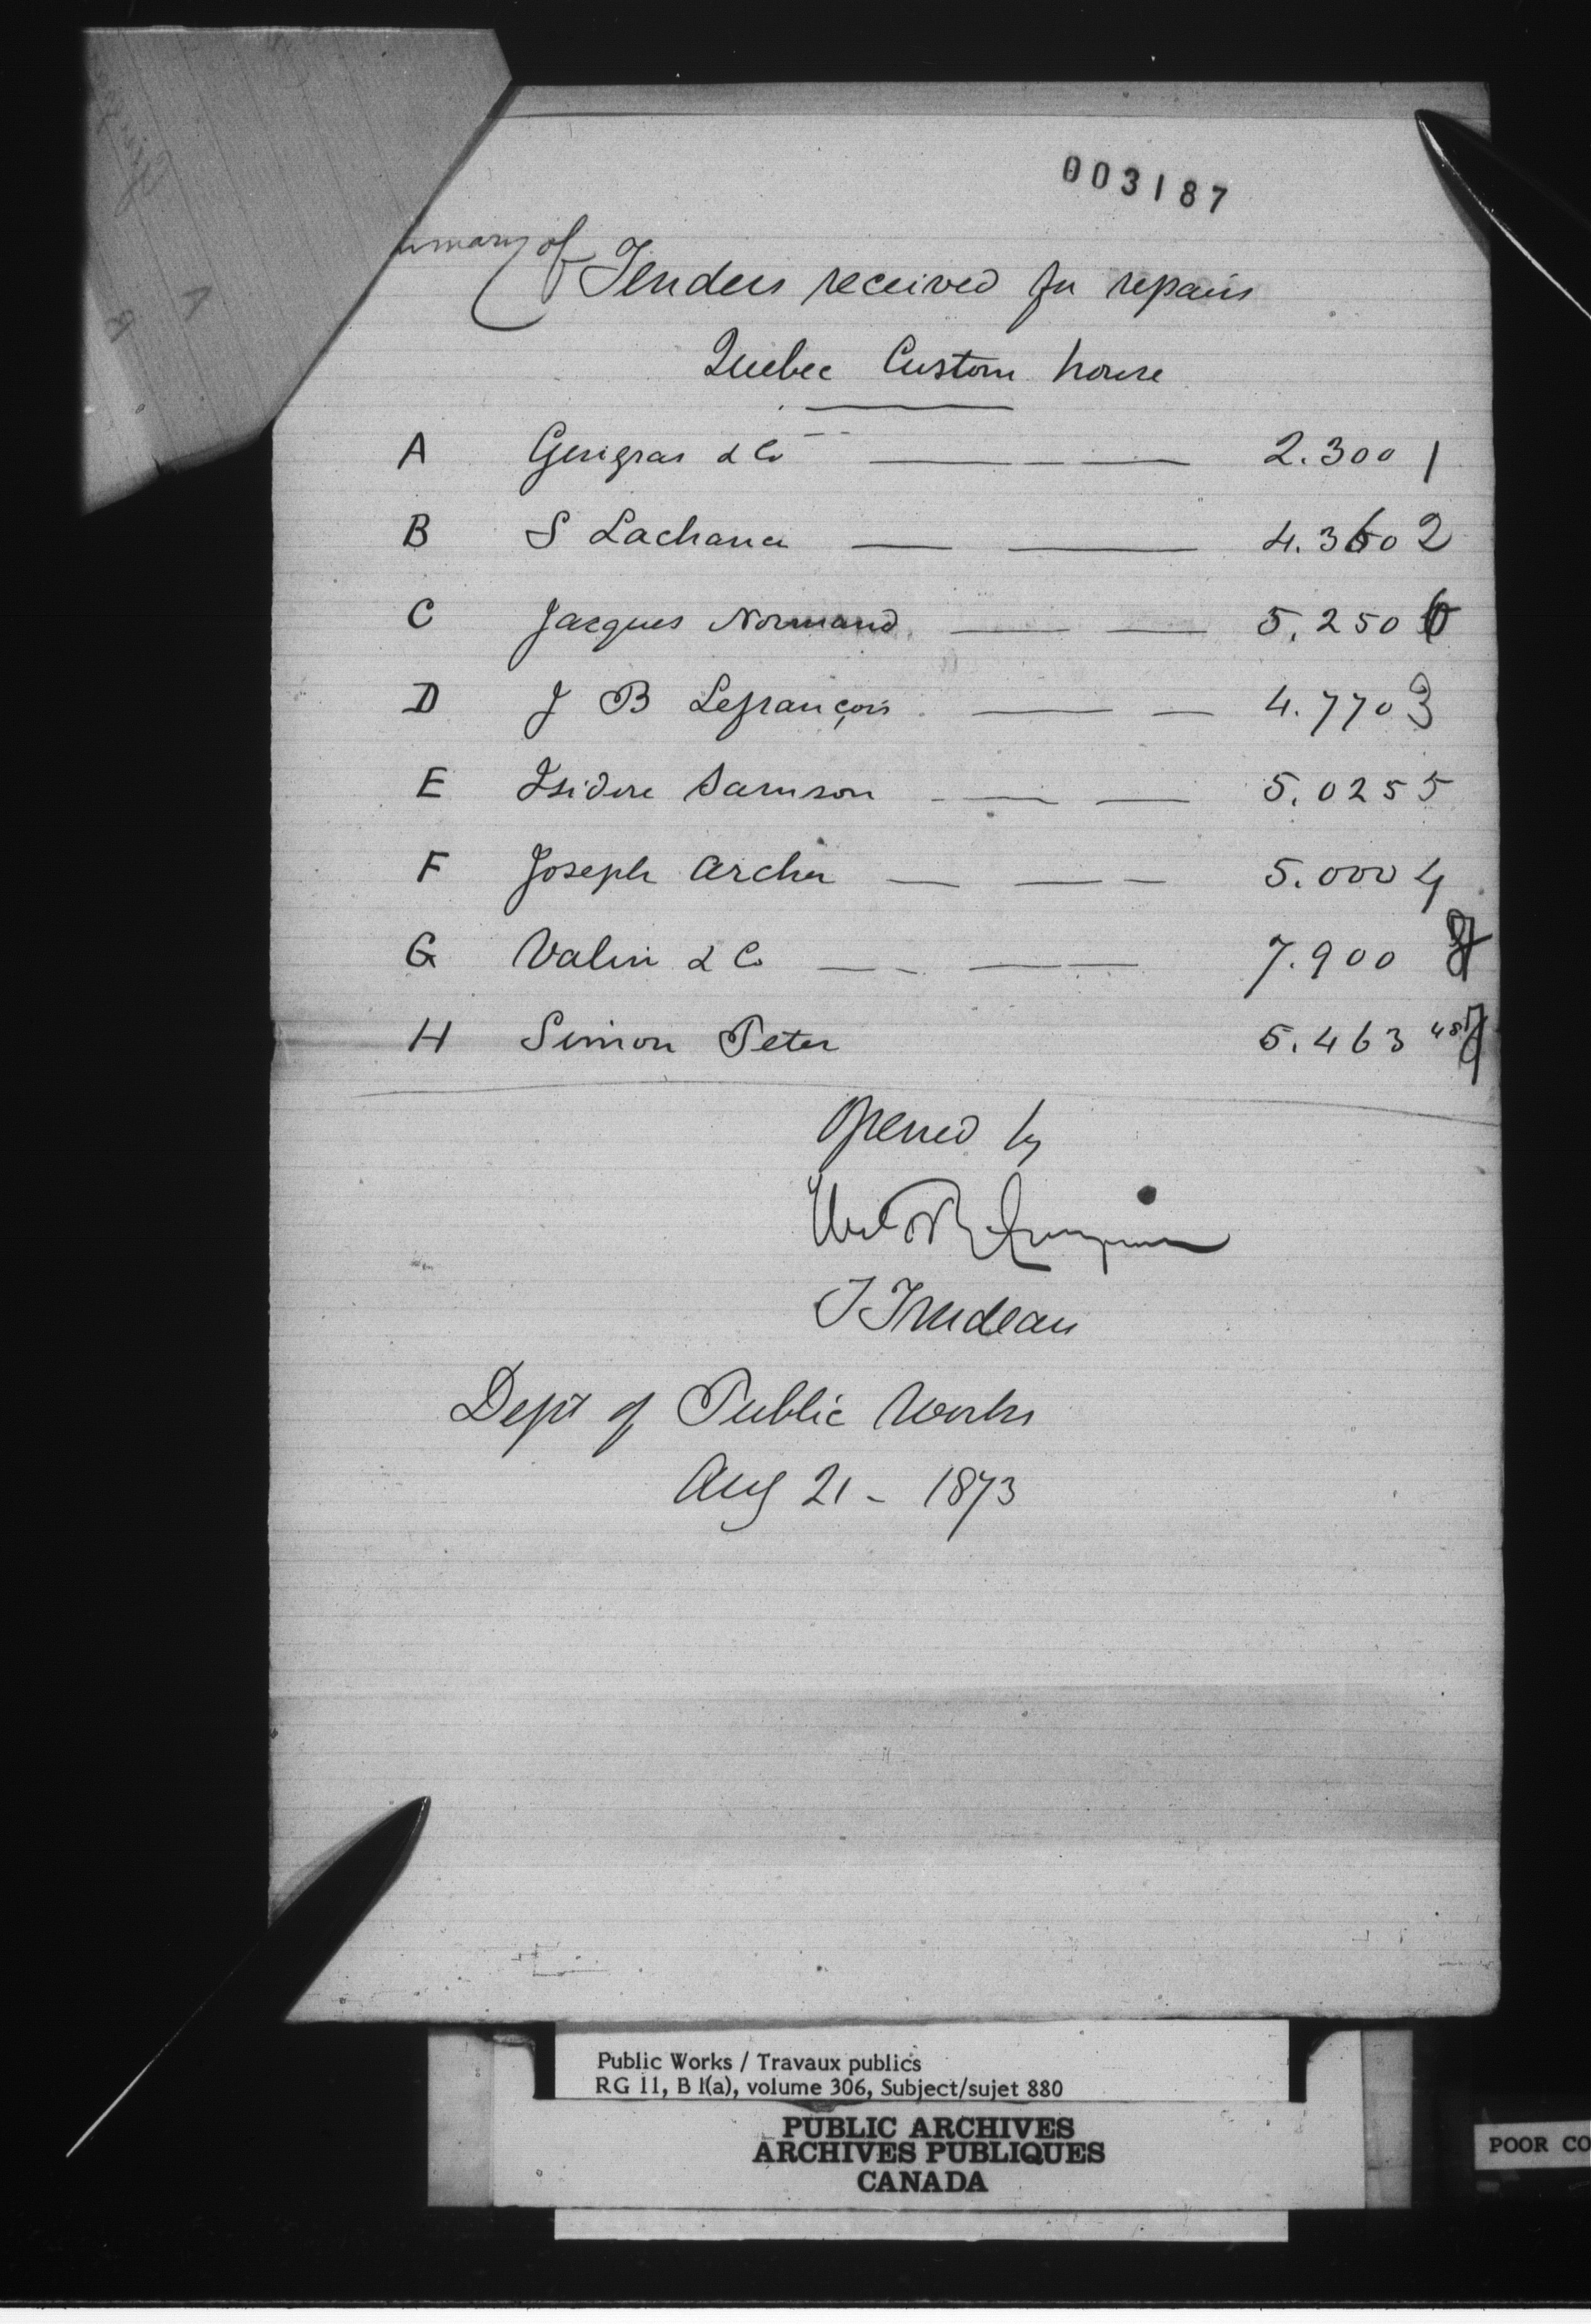 003187
of Tenders received for repairs
Quebec Custom house
A Gingras & Co 2.300 1
B S Lachance 4.360 2
C Jacques Normand 5.250 6
D J B Lefrançois 4.770 3
E Isidore Samson 5.025 5
F Joseph Archer 5.000 4
G Valin & Co 7.900
H Simon Peter 5.463 48
Opened by
T Trudeau
Dept of Public Works
Aug 21 - 1873
Public Works / Travaux publics
RG 11, B 1(a), volume 306, Subject/sujet 880
PUBLIC ARCHIVES
ARCHIVES PUBLIQUES
CANADA
POOR CO